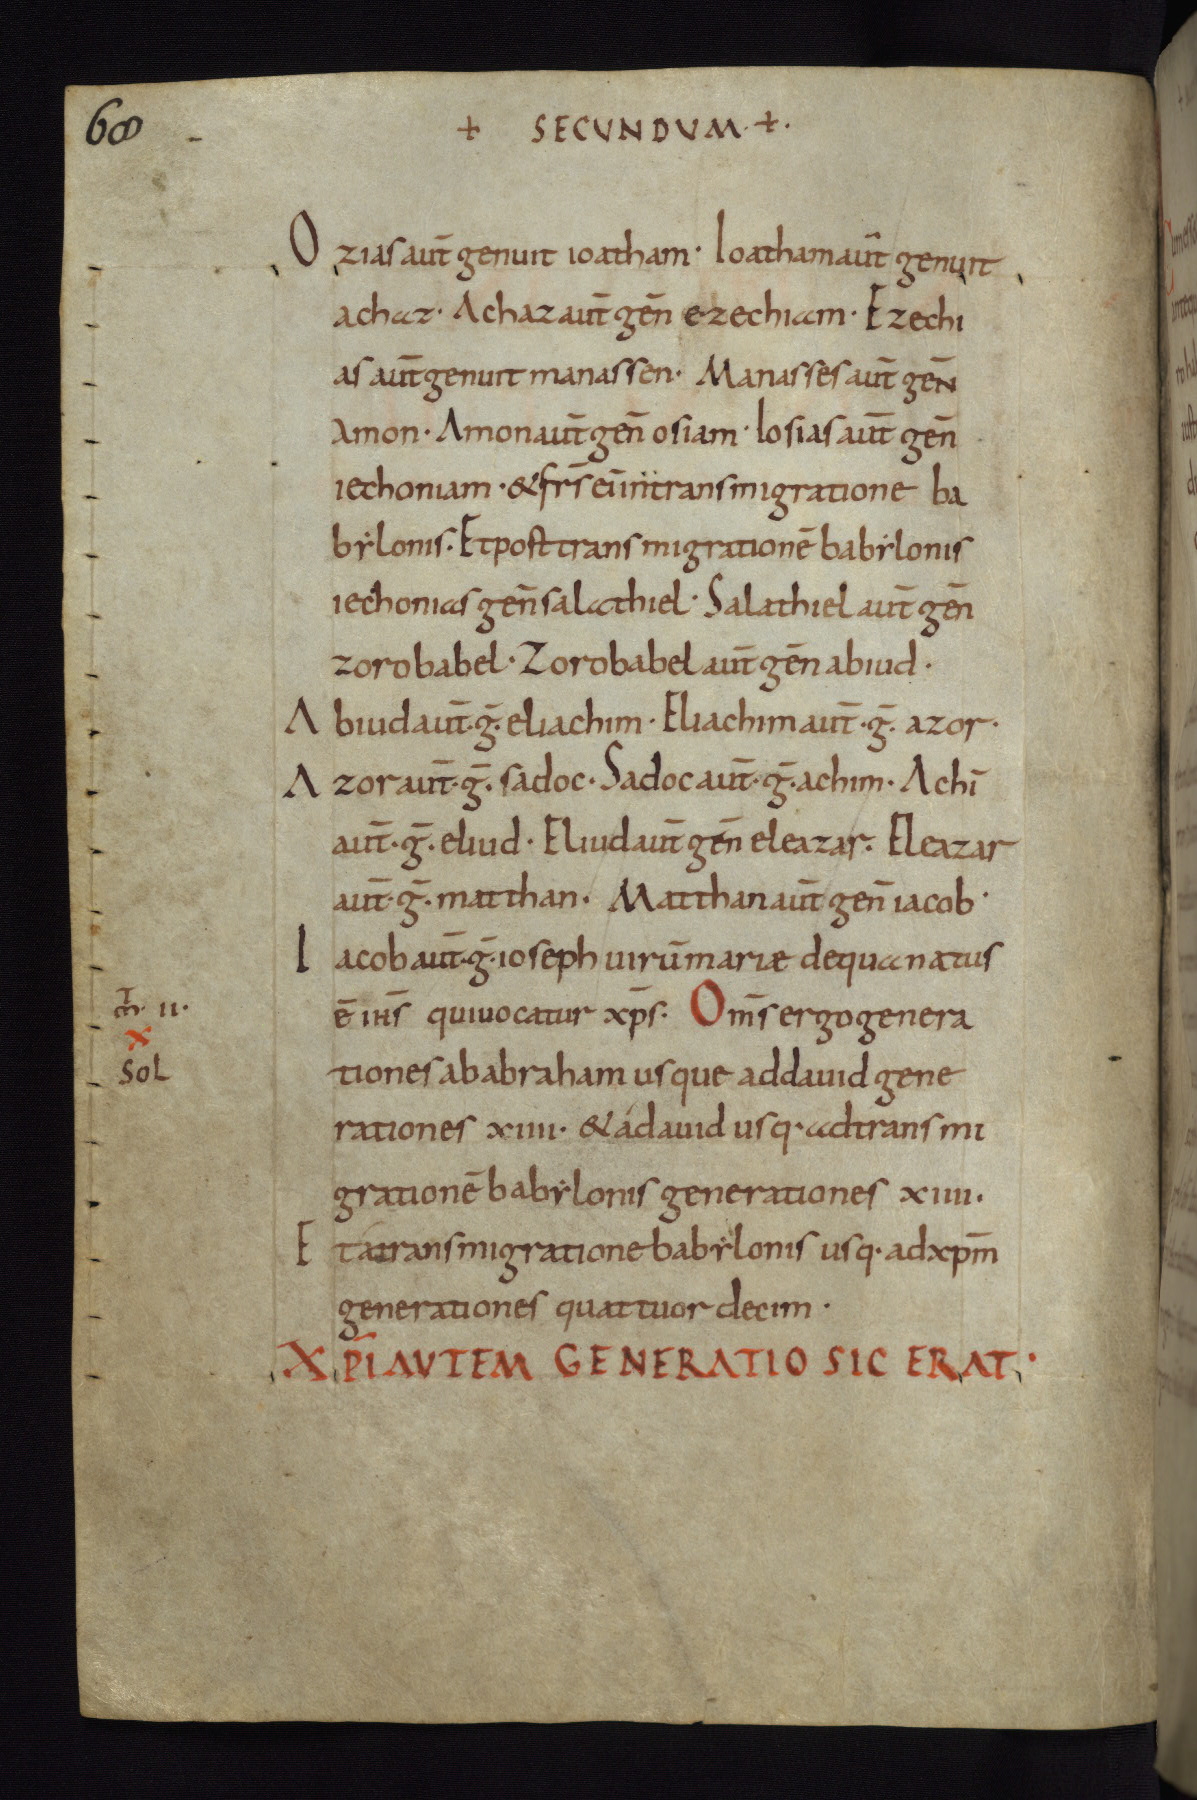 68
+ SECUNDUM · + ·
Ozias aut̄ genuit ioatham · Ioatham aut̄ genuit
achaz · Achaz aut̄ gen̄ ezechiam · Ezechi
as aut̄ genuit manassen · Manasses aut̄ gen̄
Amon · Amon aut̄ gen̄ osiam · Iosias aut̄ gen̄
iechoniam · & fr̄s ei᷎ in transmigratione ba
bẏlonis · Et post transmigrationē babẏlonis
iechonias gen̄ salathiel · Salathiel aut̄ gen̄
zorobabel · Zorobabel aut̄ gen̄ abiud ·
Abiud aut̄ · ḡ · eliachim · Eliachim aut̄ · ḡ · azor ·
Azor aut̄ · ḡ · sadoc · Sadoc aut̄ · ḡ · achim · Achī
aut̄ · ḡ · eliud · Eliud aut̄ gen̄ eleazar · Eleazar
aut̄ · ḡ · matthan · Matthan aut̄ gen̄ iacob ·
Iacob aut̄ · ḡ · ioseph uirū mariæ de qua natus
ē ih̄s qui uocatur xp̄s · Om̄s ergo genera
· II ·
X
Sol
tiones ab abraham usque ad dauid gene
rationes xiiii · & á dauid usq · ad transmi
grationē babẏlonis generationes xiiii ·
Et á transmigratione babẏlonis usq · ad xp̄m
generationes quattuor decim ·
XP̄I AUTEM GENERATIO SIC ERAT ·